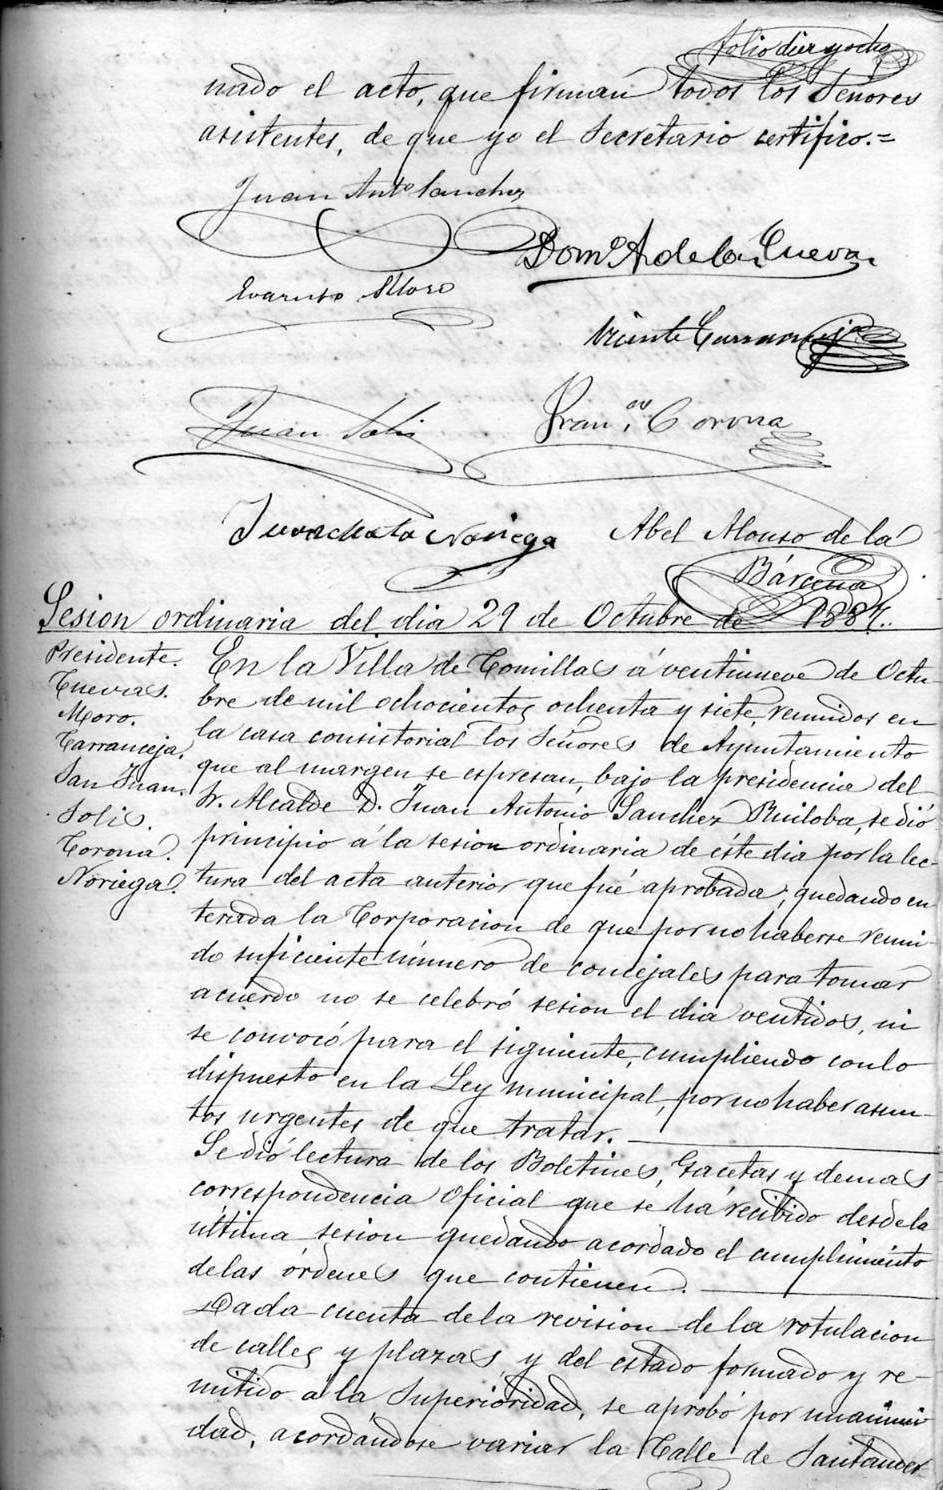 Folio diez y ocho
nado el acto, que firman todos los Señores
asistentes, de que yo el Secretario certifico.=
Juan Anto Sanchez
Domo A de la Cueva.
Evaristo Moro
Vicente Carranceja
Juan Solis
Franco Corona
Noriega
Abel Alonso de la
Bárcena
Sesion ordinaria del dia 29 de Octubre de 1887.
Presidente.
Cuevas.
Moro.
Carranceja.
San Juan.
Solis.
Corona.
Noriega.
En la Villa de Comillas á ventinueve de Octu-
bre de mil ochocientos ochenta y siete, reunidos en
la casa consistorial los Señores de Ayuntamiento
que al margen se espresan, bajo la presidencia del
Sr. Alcalde D. Juan Antonio Sanchez Ruiloba, se dió
principio á la sesion ordinaria de éste dia por la lec-
tura del acta anterior que fué aprobada; quedando en
terada la Corporacion de que por no haberse reuni-
do suficiente número de concejales para tomar
acuerdo no se celebró sesion el dia ventidos, ni
se convocó para el siguiente, cumpliendo con lo
dispuesto en la Ley municipal, por no haber asun-
tos urgentes de que tratar.
Se dió lectura de los Boletines, Gacetas y demas
correspondencia oficial que se há recibido desde la
última sesion quedando acordado el cumplimiento
de las órdenes que contienen.
Dada cuenta de la revision de la rotulacion
de calles y plazas y del estado formado y re-
mitido á la Superioridad, se aprobó por unanimi
dad, acordándose variar la Calle de Santander